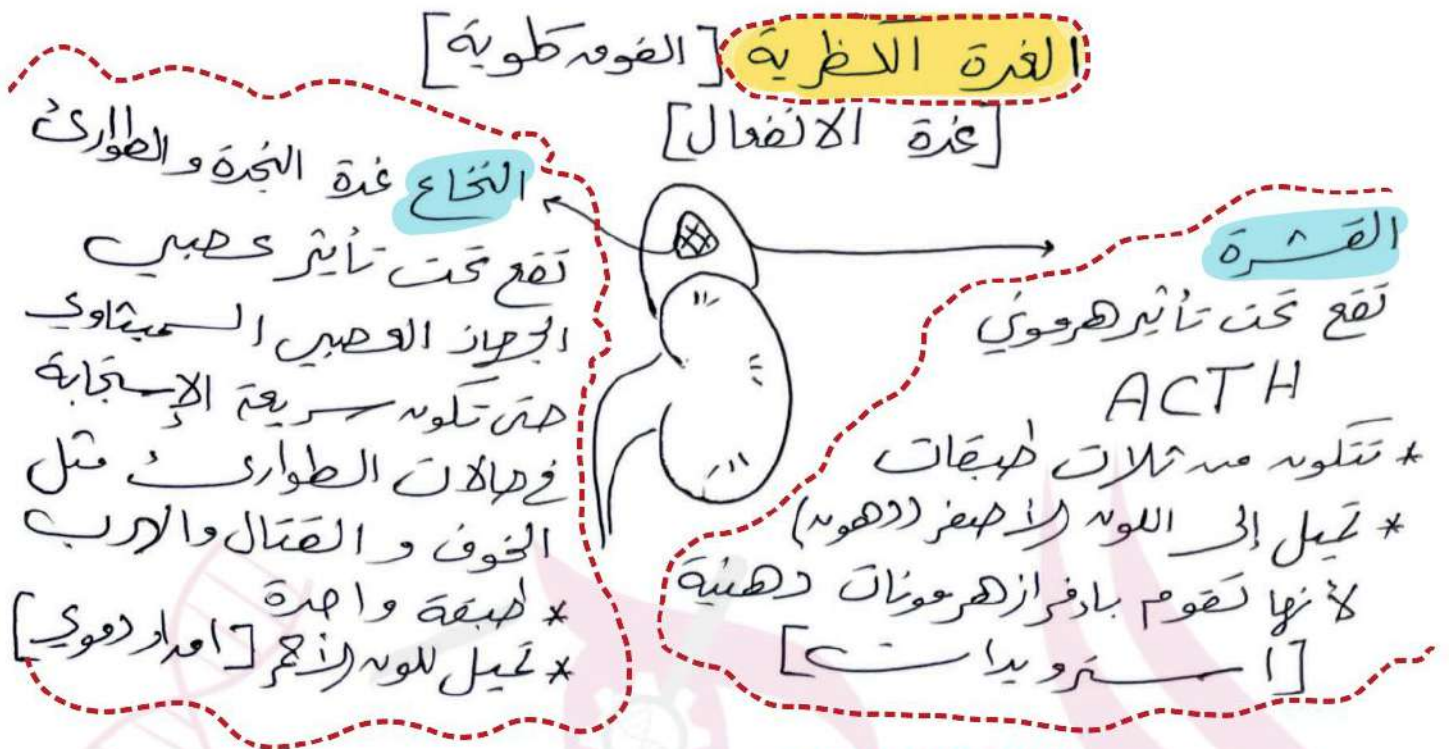 الغدة الكظرية [الفوق كلوية]
[غدة الانفعال]
القشرة
تقع تحت تأثير هرموني
ACTH
* تتكون من ثلاث طبقات
* تميل إلى اللون الأصفر (دهون)
لأنها تقوم بإفراز هرمونات دهنية
[استرويدات]
النخاع غدة النجدة والطوارئ
تقع تحت تأثير عصبي
الجهاز العصبي السمبثاوي
حتى تكون سريعة الإستجابة
في حالات الطوارئ مثل
الخوف و القتال والهرب
* طبقة واحدة
* تميل للون الأحمر [امداد دموي]